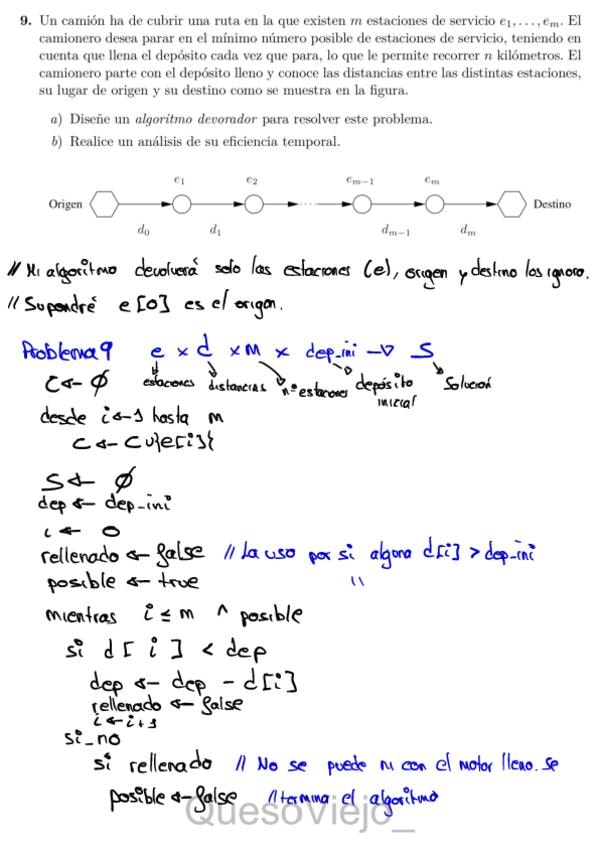 9. Un camión ha de cubrir una ruta en la que existen m estaciones de servicio e₁, . . . , eₘ. El
camionero desea parar en el mínimo número posible de estaciones de servicio, teniendo en
cuenta que llena el depósito cada vez que para, lo que le permite recorrer n kilómetros. El
camionero parte con el depósito lleno y conoce las distancias entre las distintas estaciones,
su lugar de origen y su destino como se muestra en la figura.
a) Diseñe un algoritmo devorador para resolver este problema.
b) Realice un análisis de su eficiencia temporal.
e₁ e₂ eₘ₋₁ eₘ
Origen ··· Destino
d₀ d₁ dₘ₋₁ dₘ
// Mi algoritmo devolverá solo las estaciones (e), origen y destino los ignoro.
// Supondré e[0] es el origen.
Problema9 e × d × m × dep_ini → S
C ← ∅ estaciones distancias nº estaciones depósito inicial Solución
desde i ← 1 hasta m
C ← C ∪ {e[i]}
S ← ∅
dep ← dep_ini
i ← 0
rellenado ← false // La uso por si alguna d[i] > dep_ini
posible ← true "
mientras i ≤ m ∧ posible
si d[i] < dep
dep ← dep - d[i]
rellenado ← false
i ← i+1
si_no
si rellenado // No se puede ni con el motor lleno. Se
posible ← false // termina el algoritmo
QuesoViejo_